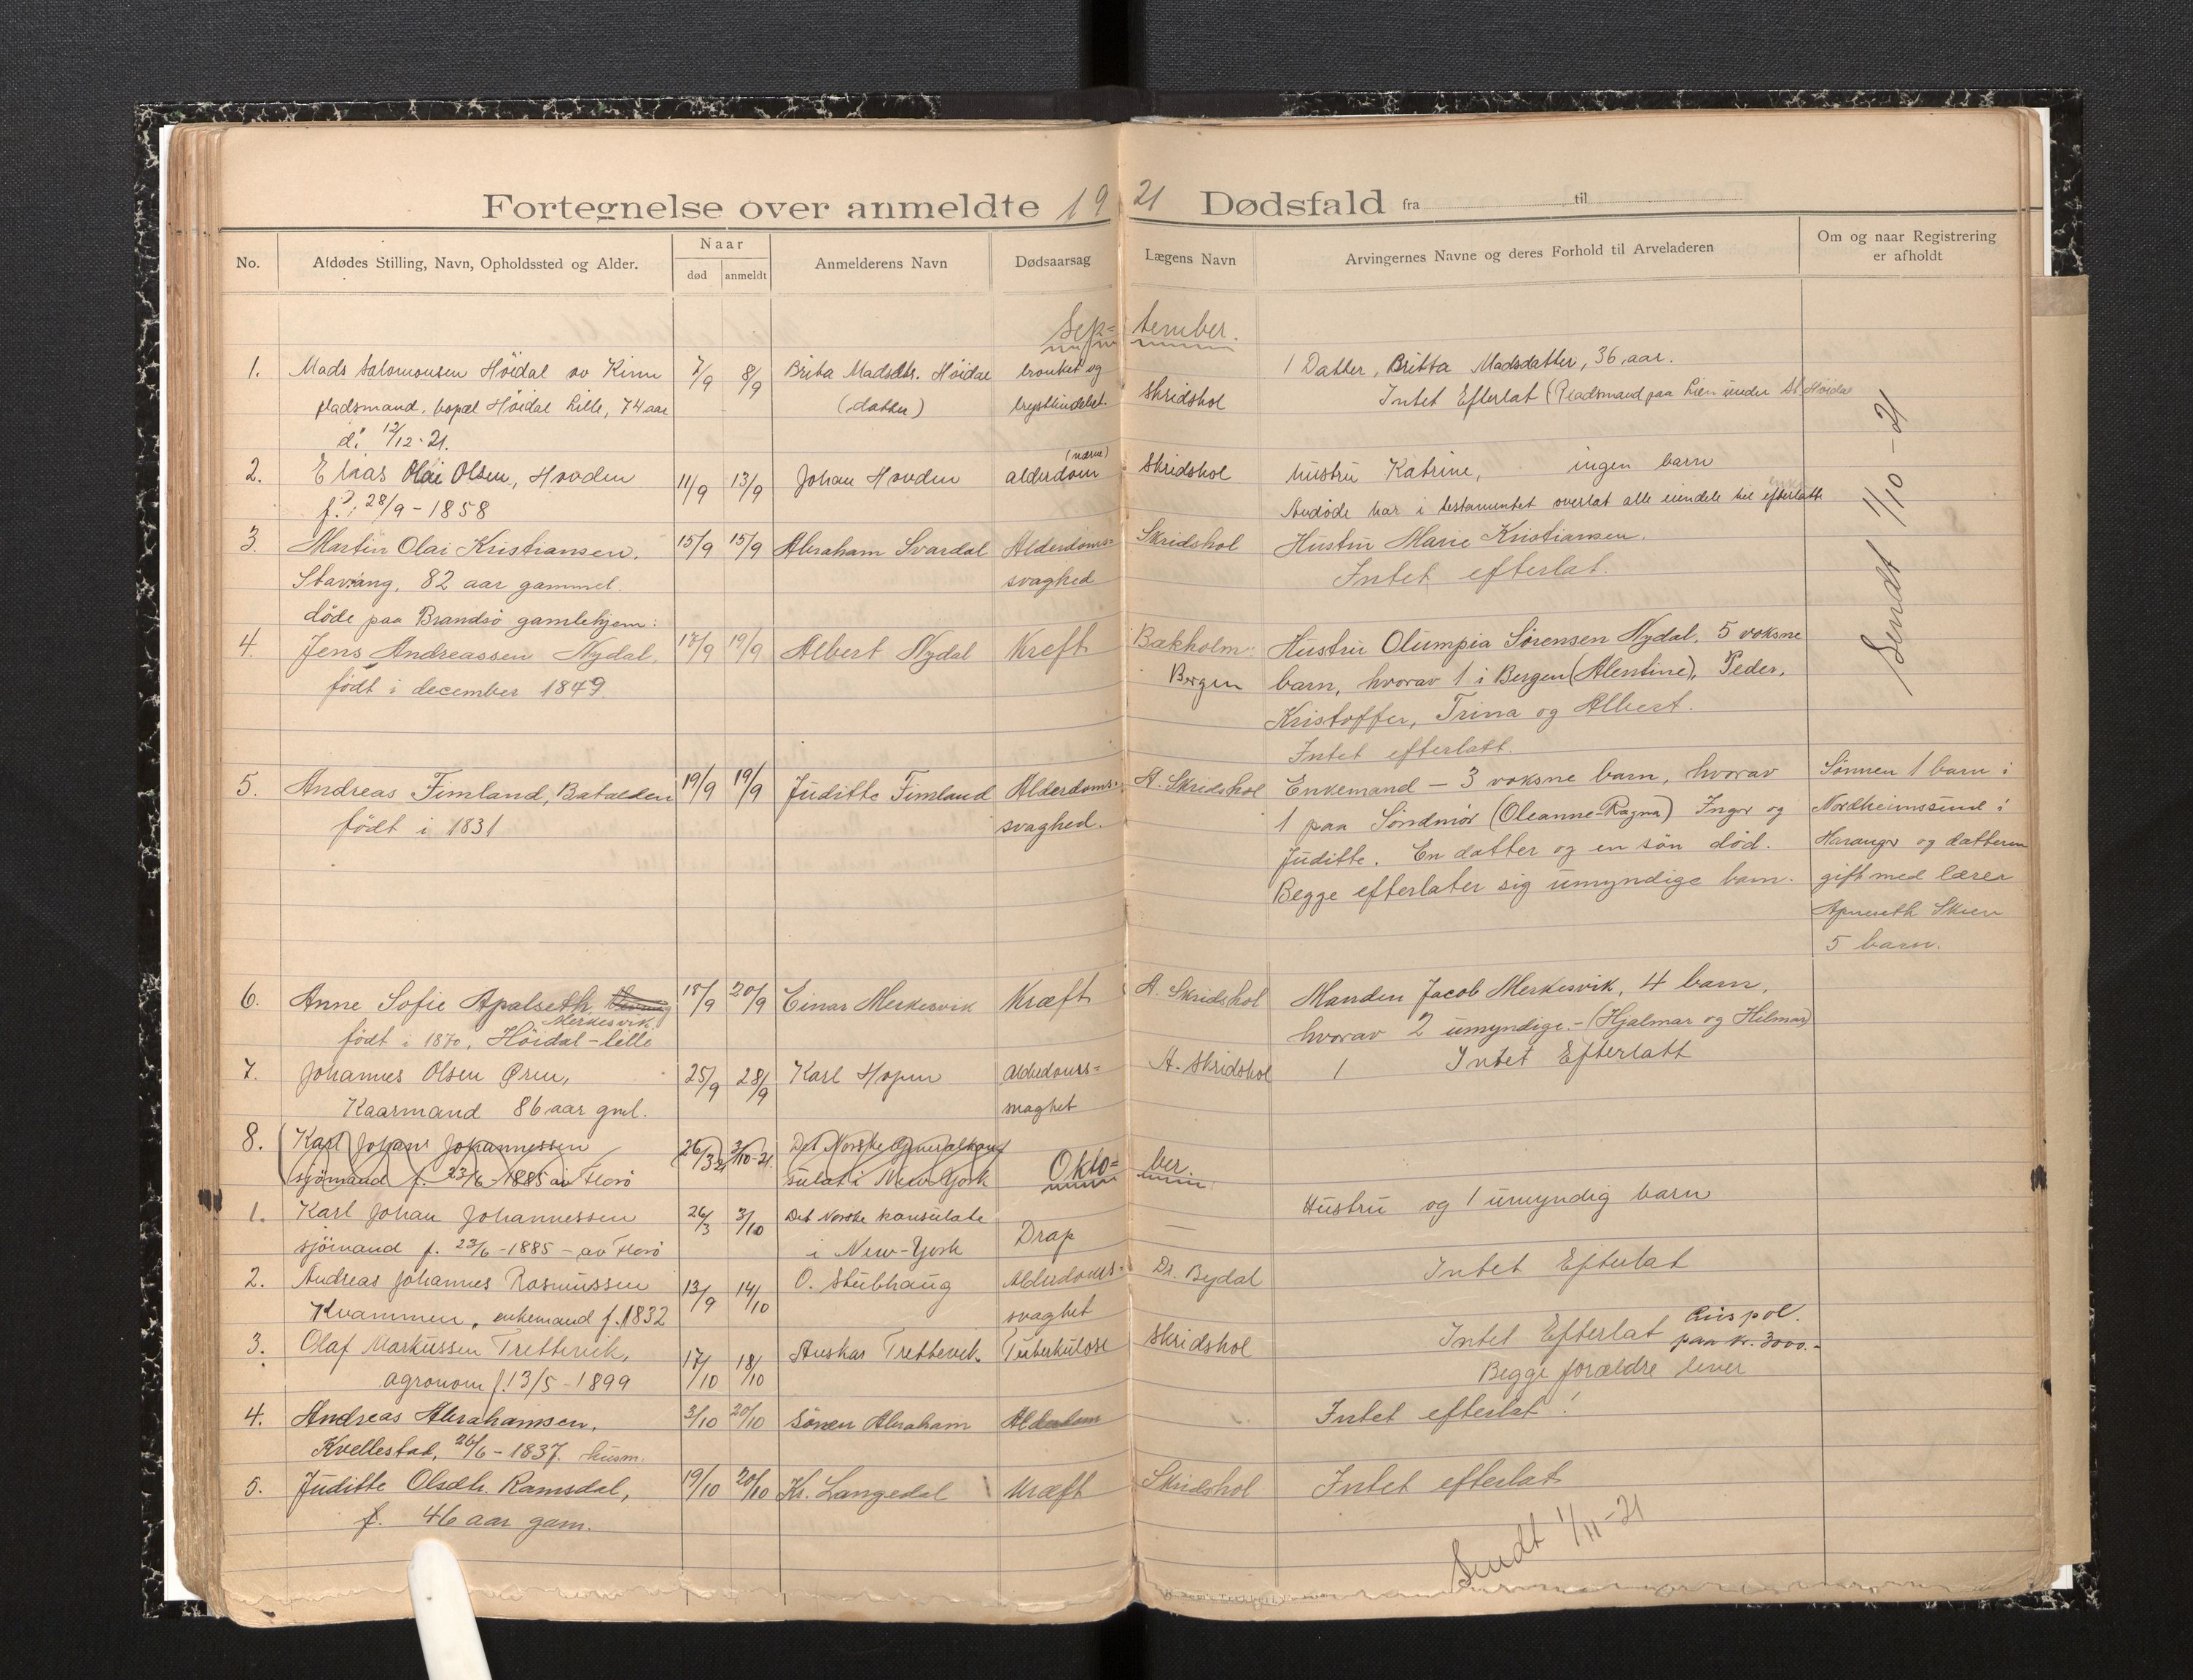 Fortegnelse over anmeldte 1921 Dødsfald fra til
No.
Afdødes Stilling, Navn, Opholdssted og Alder.
Naar
død
anmeldt
Anmelderens Navn
Dødsaarsag
Lægens Navn
Arvingernes Navne og deres Forhold til Arveladeren
Om og naar Registrering
er afholdt
Sep=tember.
1. Mads Salomonsen Höidal av Kinn 7/9 8/9 Brita Madsdtr. Höidal bronkit og
1 Datter, Britta Madsdatter, 36 aar.
pladsmand, bopæl Höidal Lille, 74 aar (datter) brystlindelse Skridshol Intet Efterlat (Pladsmand paa Lien under St. Höidal
d: 12/12-21.
2. Elias Olai Olsen, Hovden 11/9 13/9 Johan Hovden (nærve) alderdom Skridshol Hustru Katrine, ingen barn
f. : 28/9 - 1858
Avdöde har i testamentet overlat alle eiendele til efterlatte enke
3. Martin Olai Kristiansen, 15/9 15/9 Abraham Svardal Alderdoms= Skridshol Hustru Marie Kristiansen.
Stavang, 82 aar gammel. svaghed Intet efterlat.
döde paa Brandsö gamlehjem:
4. Jens Andreassen Nydal, 17/9 19/9 Albert Nydal Kreft Bækholm Hustru Olumpia Sörensen Nydal. 5 voksne
født i december 1849 Bergen barn, hvorav 1 i Bergen (Alentine), Peder,
Kristoffer, Trina og Albert.
Intet efterlatt.
Sendt 1/10-21
5. Andreas Fimland, Batalden 19/9 19/9 Juditte Fimland Alderdoms= A. Skridshol Enkemand - 3 voksne barn, hvorav Sönnen 1 barn i
födt i 1831 svaghed. 1 paa Söndmör (Oleanne-Ragna) Inger og Nordheimssund i
Juditte. En datter og en sön död. Haranger og datteren
Begge efterlater sig umyndige barn. gift med lærer
Apneseth Skien
5 barn.
6. Anne Sofie Apalseth, Merkesvik 18/9 20/9 Einar Merkesvik Kræft A. Skridshol Manden Jacob Merkesvik, 4 barn,
født i 1870, Höidal-lille hvorav 2 umyndige. - (Hjalmar og Hilmar)
7. Johannes Olsen Øren, 25/9 28/9 Karl Hopen Alderdoms= A. Skridshol 1 Intet Efterlatt
Kaarmand 86 aar gml. svaghet
8. Karl Johan Johannessen 26/3 21 3/10-21 Det Norske Generalkon
sjömand f. 23/6-1885 av Florö sulat i New York
Okto=ber.
1. Karl Johan Johannessen 26/3 3/10 Det Norske konsulate Hustru og 1 umyndig barn
sjömand f. 23/6-1885 - av Florö i New-York Drap —
2. Andreas Johannes Rasmussen 13/9 14/10 O. Stubhaug Alderdoms= Dr. Bydal Intet Efterlat
Kvammen, enkemand f. 1832 svaghet
3. Olaf Markussen Trettevik, 17/10 18/10 Anskar Trettevik. Tuberkulose Skridshol Intet Efterlat Livspol. paa kr. 3000.-
agronom f. 13/5 - 1899 Begge forældre lever
4. Andreas Abrahamsen, 3/10 20/10 Sönen Abraham Alderdom Intet efterlat!
Kvellestad, 26/6 - 1837. husm.
5. Juditte Olsdtr. Ramsdal, 19/10 20/10 Kr. Langedal Kræft Skridshol Intet efterlat
f. 46 aar gam.
Sendt 1/11-21